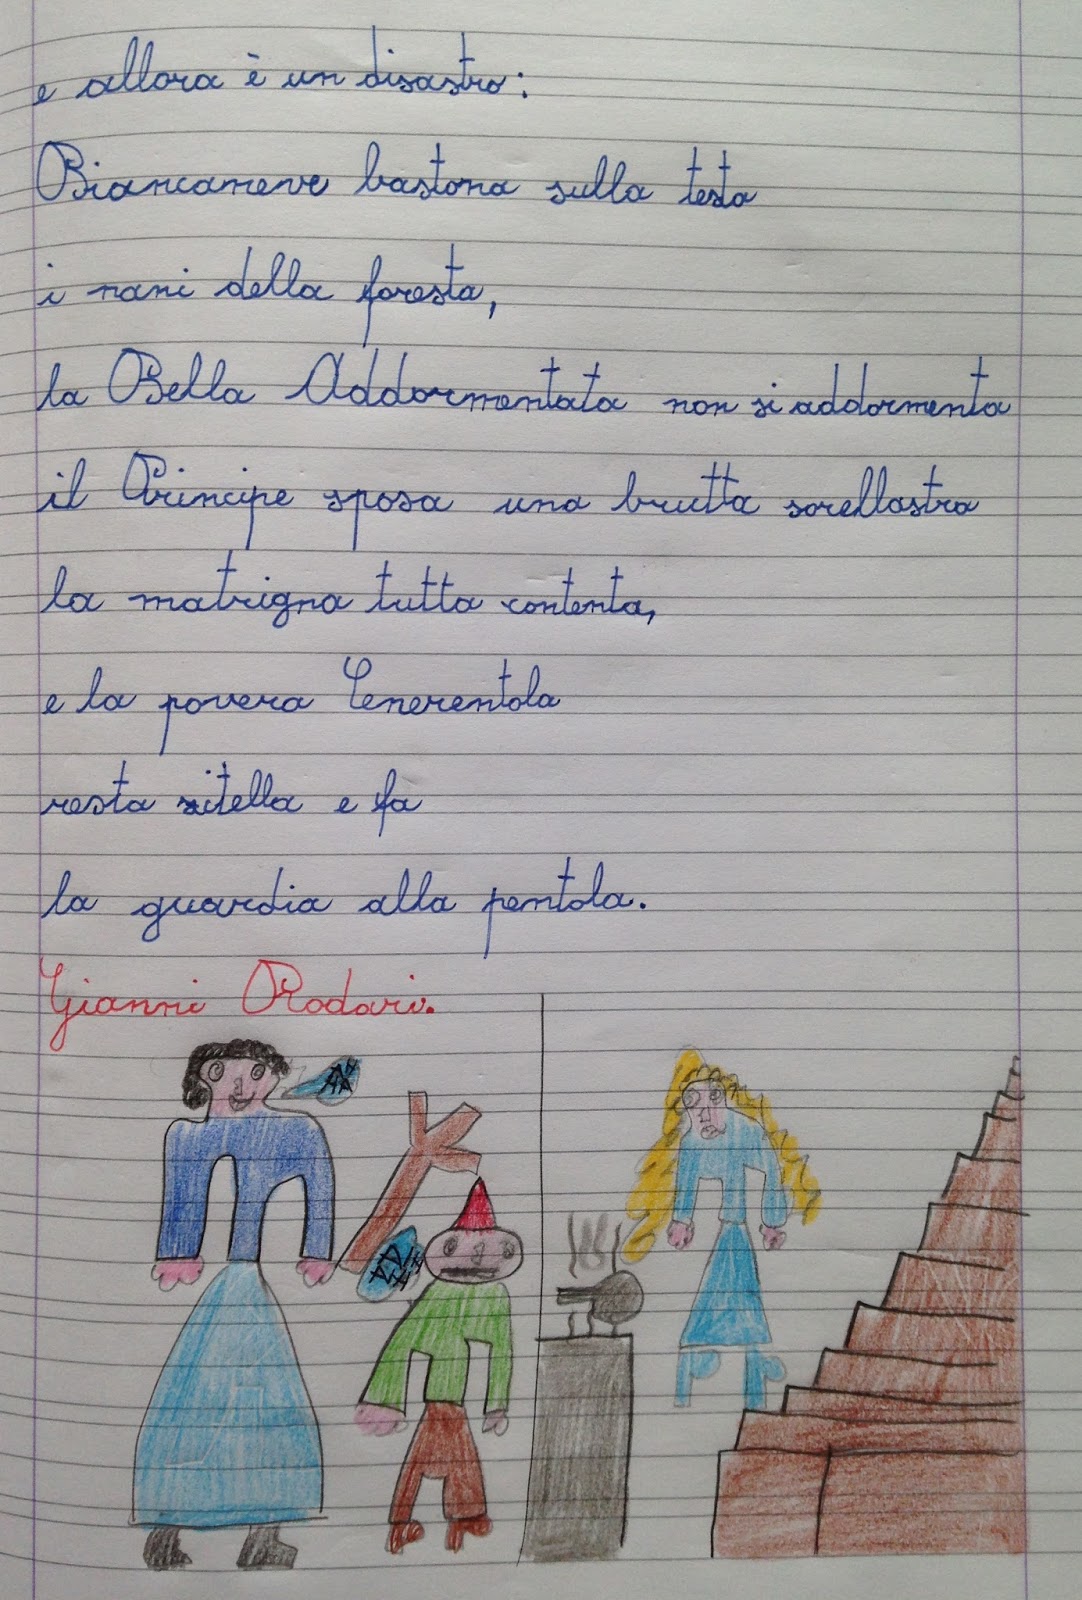 e allora è un disastro:
Biancaneve bastona sulla testa
i nani della foresta,
la Bella Addormentata non si addormenta
il Principe sposa una brutta sorellastra
la matrigna tutta contenta,
e la povera Cenerentola
resta zitella e fa
la guardia alla pentola.
Gianni Rodari.